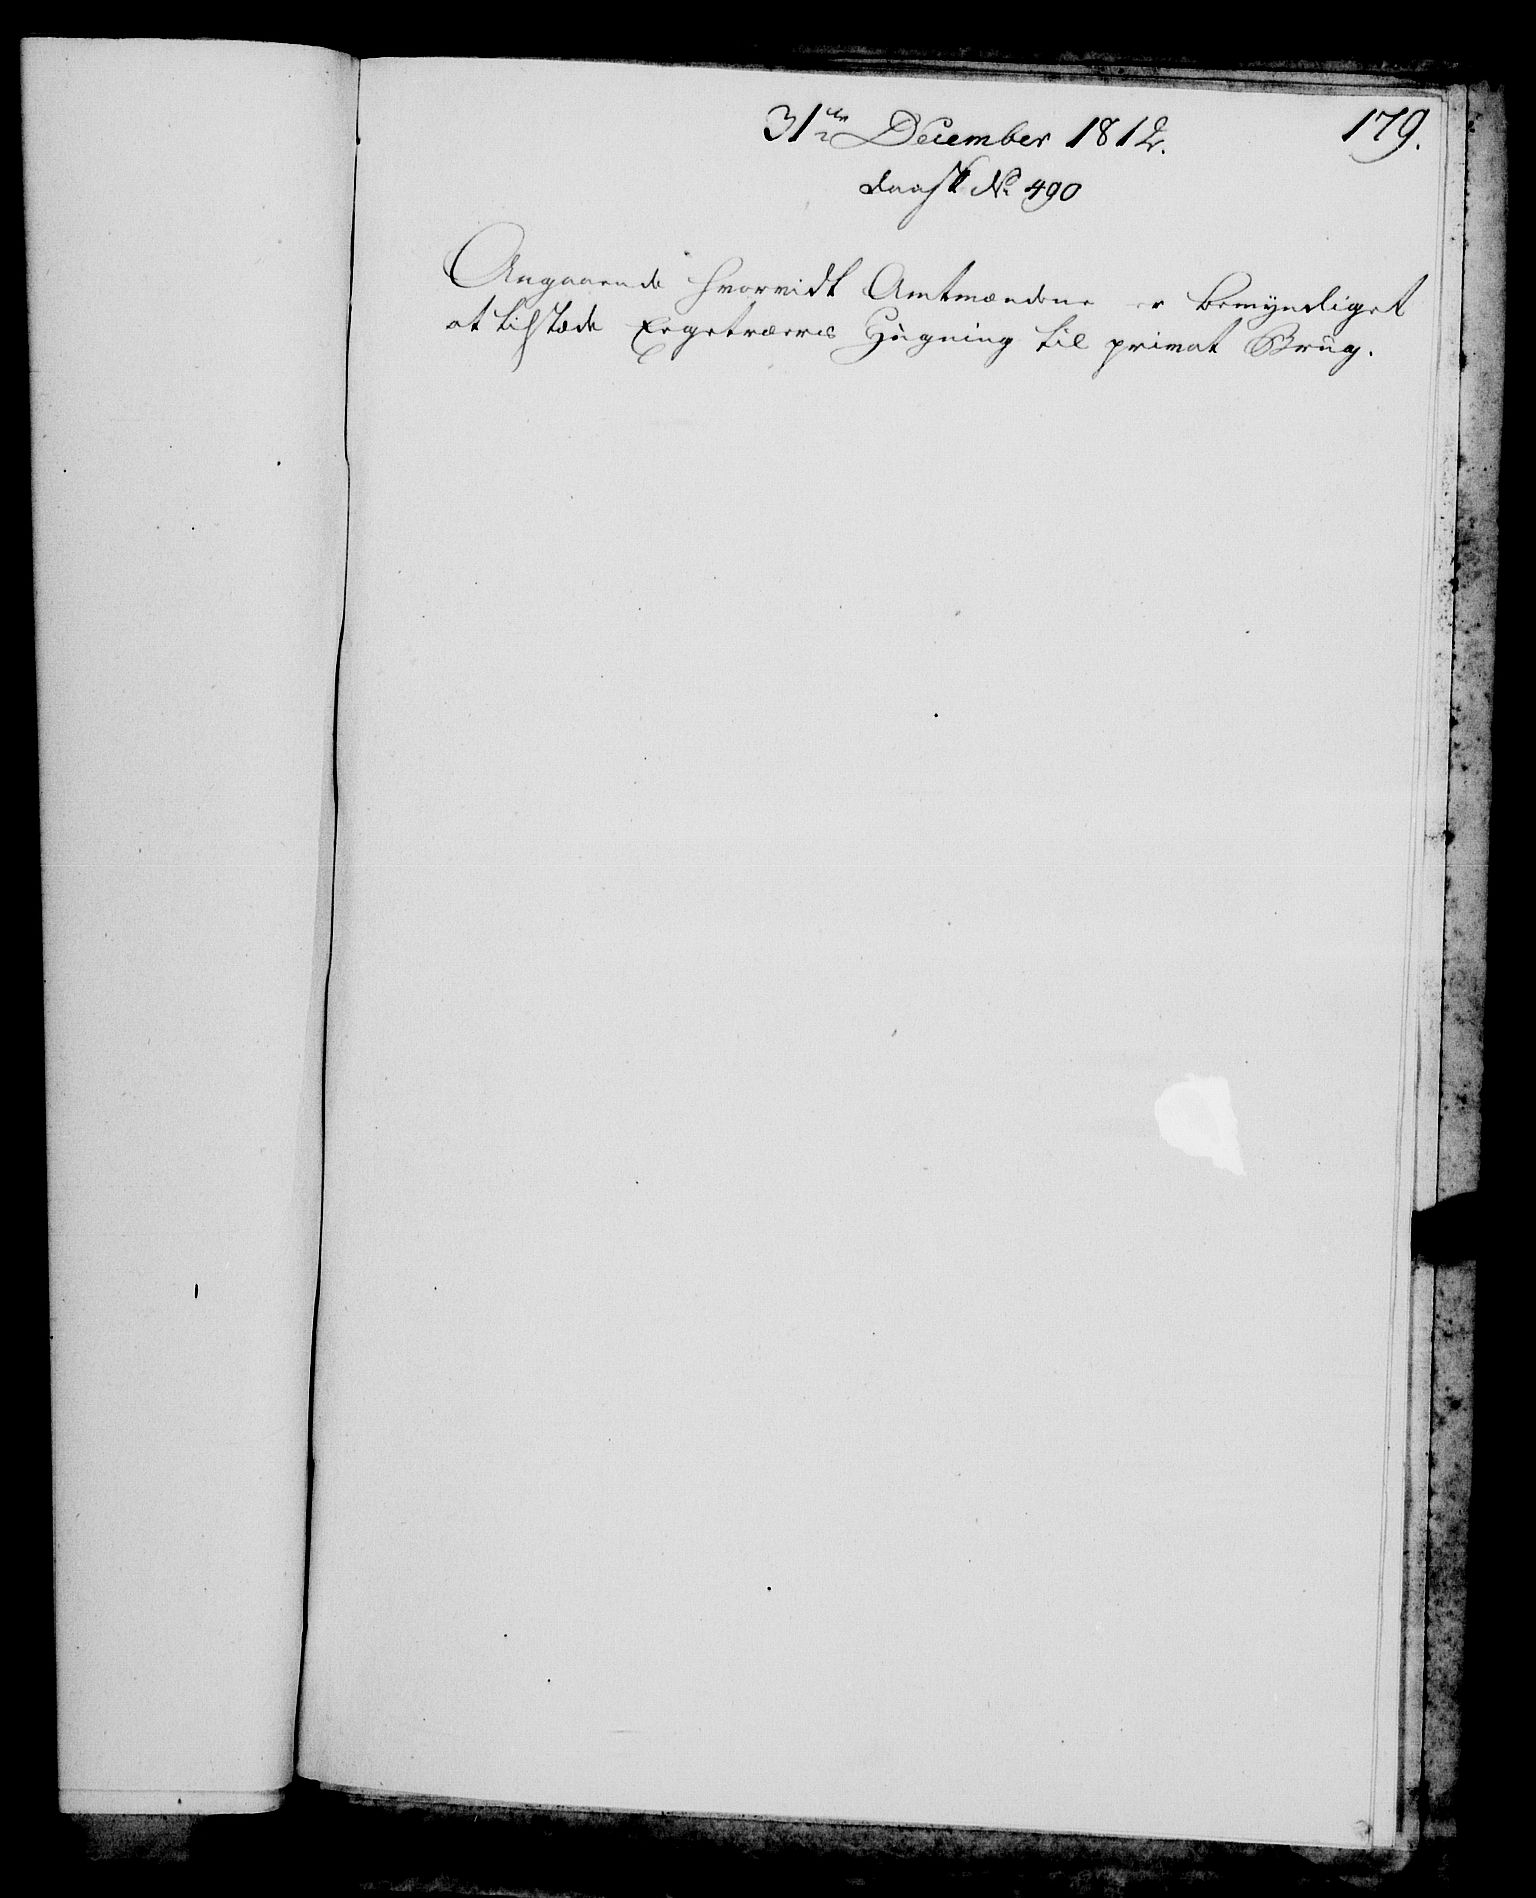 31te December 1812.
179.
dansk No 490
Angaaende hvorvidt Amtmændene er bemyndiget
at tilstæde Eegetræers Hugning til privat Brug.